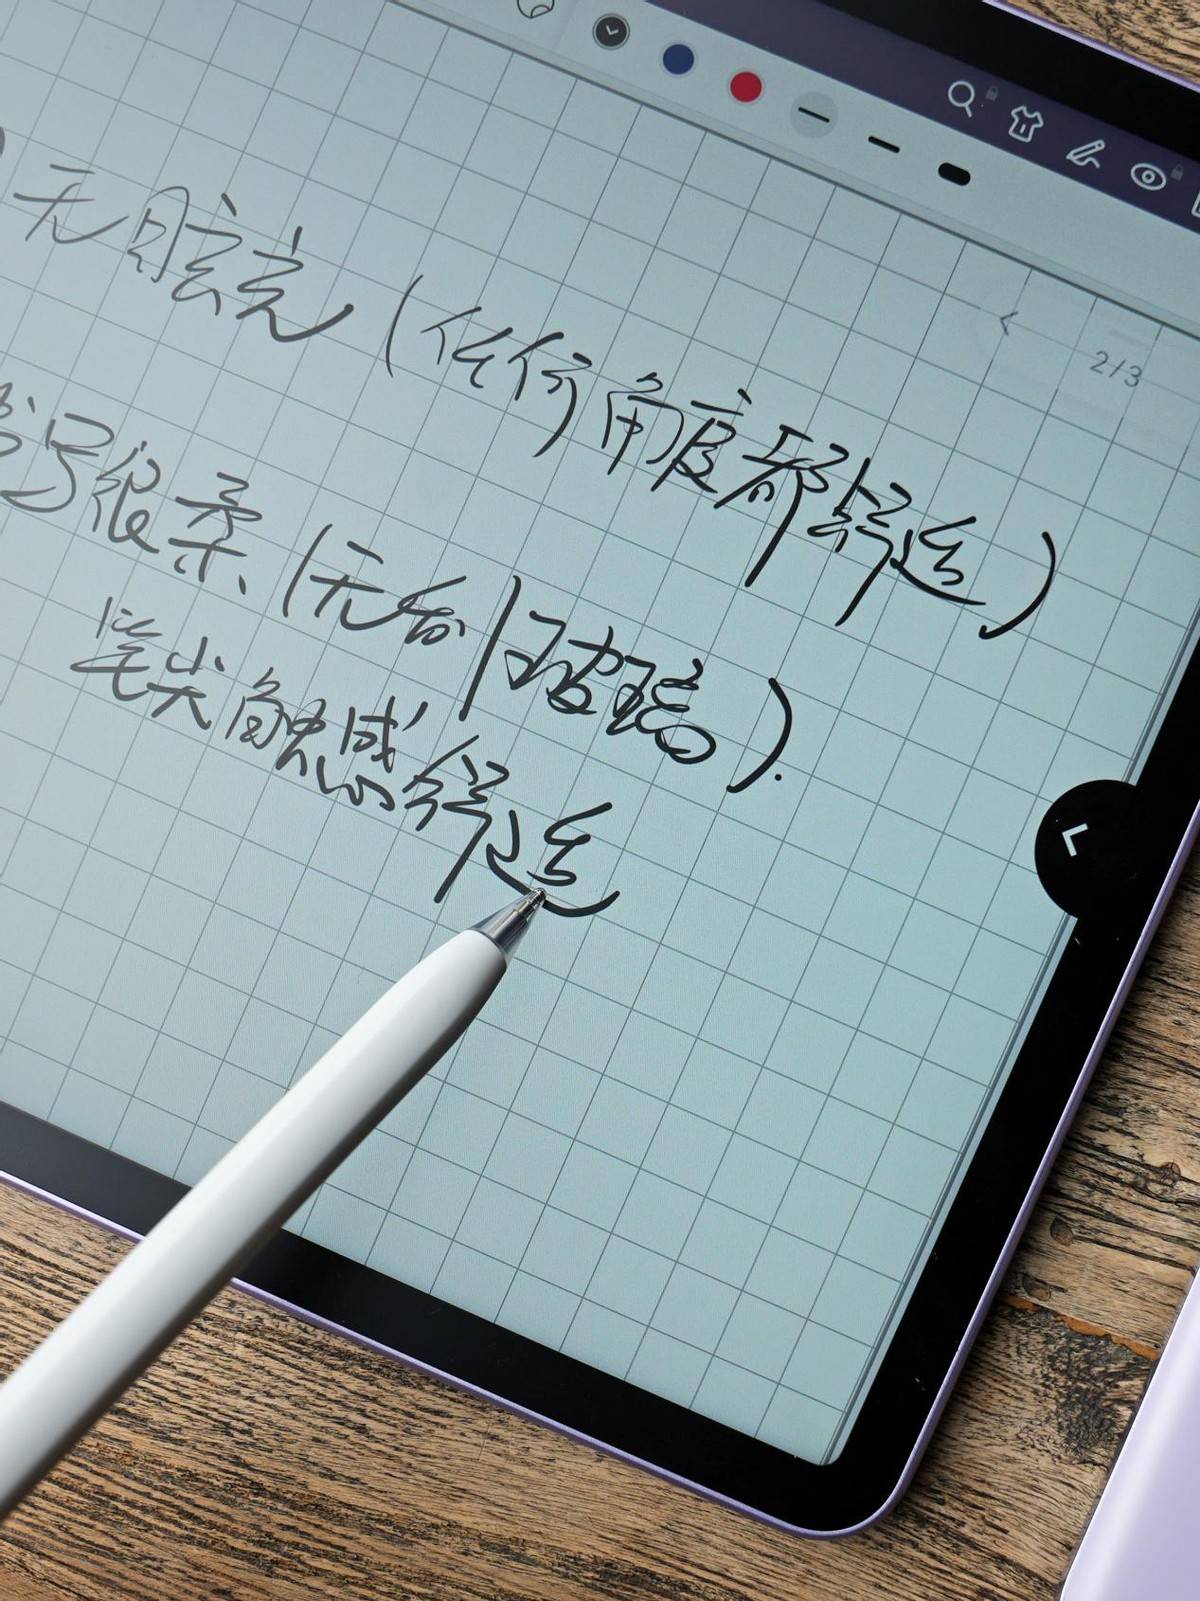 2/3
无眩光（任何角度都舒适）
书写很柔（无刮玻璃）.
笔尖触感舒适